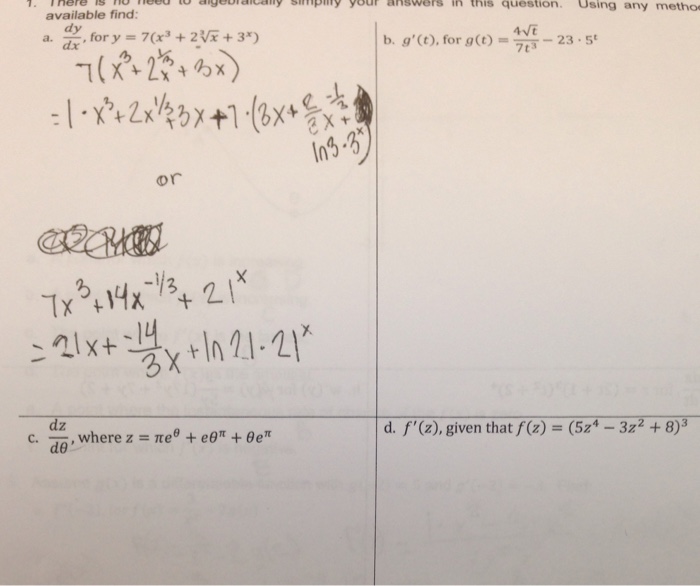 1. There is no need to algebraically simplify your answers in this question. Using any method
available find:
a. dy/dx, for y = 7(x³ + 2∛x + 3ˣ)
7(x³+2x^1/3+3x)
=1·x³+2x^1/3+3x+7·(3x+2/3x^-1/3+
ln3·3ˣ)
or
7x³+14x^-1/3+21ˣ
=21x+-14/3x+ln21·21ˣ
b. g'(t), for g(t) = 4√t/7t³ − 23 · 5ᵗ
c. dz/dθ, where z = πe^θ + eθ^π + θe^π
d. f'(z), given that f(z) = (5z⁴ − 3z² + 8)³